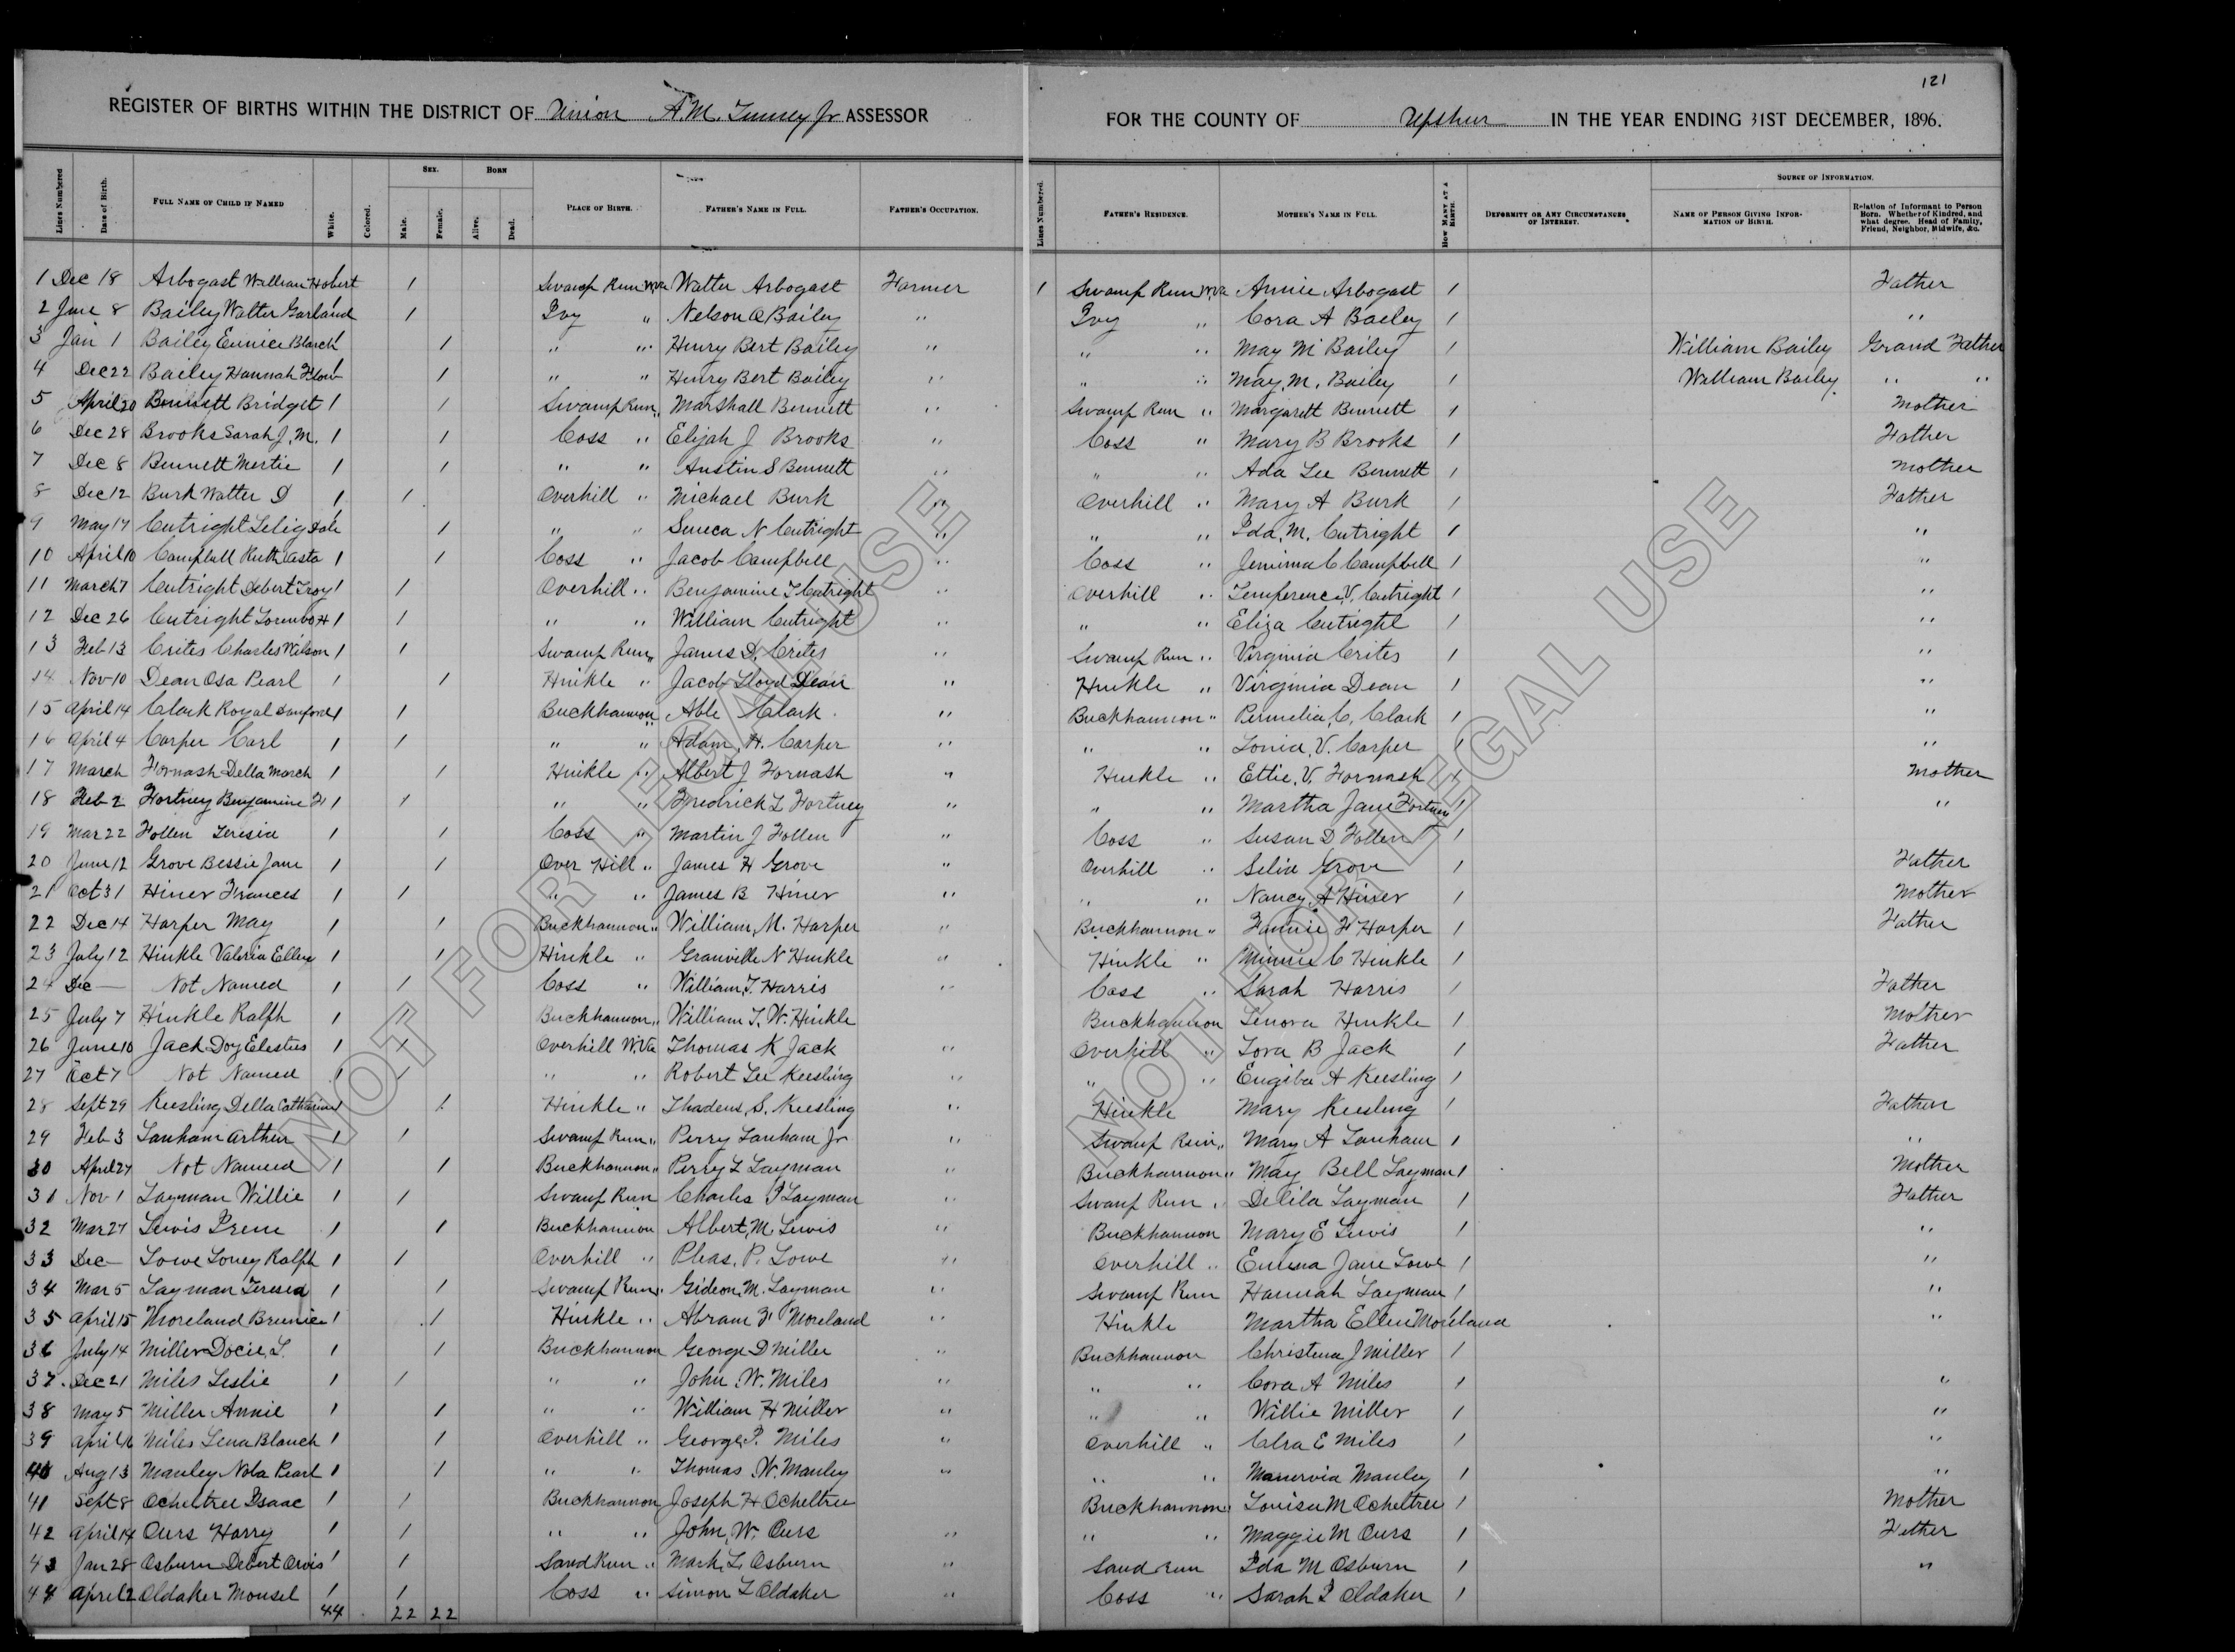 121
REGISTER OF BIRTHS WITHIN THE DISTRICT OF Union A.M. Tenney Jr ASSESSOR FOR THE COUNTY OF Upshur IN THE YEAR ENDING 31ST DECEMBER, 1896.
Lines Numbered Date of Birth. FULL NAME OF CHILD IF NAMED White. Colored. SEX. Male. Female. BORN Alive. Dead. PLACE OF BIRTH. FATHER'S NAME IN FULL. FATHER'S OCCUPATION. Lines Numbered. FATHER'S RESIDENCE. MOTHER'S NAME IN FULL. HOW MANY AT A BIRTH. DEFORMITY OR ANY CIRCUMSTANCES OF INTEREST. SOURCE OF INFORMATION. NAME OF PERSON GIVING INFORMATION OF BIRTH. Relation of Informant to Person Born. Whether of Kindred, and what degree, Head of Family, Friend, Neighbor, Midwife, &c.
1 Dec 18 Arbogast William Hobert 1 1 Swamp Run W.Va Walter Arbogast Farmer 1 Swamp Run W.Va Annie Arbogast 1 Father
2 June 8 Bailey Walter Garland 1 1 Ivy " Nelson A Bailey " Ivy " Cora A Bailey 1 "
3 Jan 1 Bailey Eunice Blanch 1 1 " " Henry Bert Bailey " " " May M Bailey 1 William Bailey Grand Father
4 Dec 22 Bailey Hannah 1 1 " " Henry Bert Bailey " " " May. M. Bailey 1 William Bailey " "
5 April 20 Bennett Bridget 1 1 Swamp Run " Marshall Bennett " Swamp Run " Margarett Bennett 1 Mother
6 Dec 28 Brooks Sarah J. M. 1 1 Coss " Elijah J Brooks " Coss " Mary B Brooks 1 Father
7 Dec 8 Bennett Mertie 1 1 " " Austin S Bennett " " " Ada Lee Bennett 1 Mother
8 Dec 12 Burk Walter D 1 1 Overhill " Michael Burk " Overhill " Mary A Burk 1 Father
9 May 17 Cutright 1 1 " " Seneca N Cutright " " " Ida. M. Cutright 1 "
10 April 10 Campbell Ruth Casta 1 1 Coss " Jacob Campbell " Coss " Jemima C Campbell 1 "
11 March 7 Cutright Debert Troy 1 1 Overhill " Benjamine F Cutright " Overhill " Temperence, V. Cutright 1 "
12 Dec 26 Cutright Lorenbo H 1 1 " " William Cutright " " " Eliza Cutright 1 "
13 Feb 13 Crites Charles Wilson 1 1 Swamp Run " James D. Crites " Swamp Run " Virginia Crites 1 "
14 Nov 10 Dean Osa Pearl 1 1 Hinkle " Jacob Lloyd Dean " Hinkle " Virginia Dean 1 "
15 April 14 Clark Royal Sanford 1 1 Buckhannon " Able Clark " Buckhannon " Permelia, C. Clark 1 "
16 April 4 Carper Carl 1 1 " " Adam, H. Carper " " " Louia, V. Carper 1 "
17 March Fornash Della March 1 1 Hinkle " Albert J Fornash " Hinkle " Ettie. V. Fornash 1 Mother
18 Feb 2 Fortney Benjamine F 1 1 " " Fredrick L Fortney " " " Martha Jane Fortney 1 "
19 Mar 22 Follen Teresia 1 1 Coss " Martin J Follen " Coss " Susan D Follen 1
20 June 12 Grove Bessie Jane 1 1 Over Hill " James H Grove " Overhill " Selia Grove 1 Father
21 Oct 31 Hiner Frances 1 1 " " James B Hiner " " " Nancy. A Hiner 1 Mother
22 Dec 14 Harper May 1 1 Buckhannon " William, M. Harper " Buckhannon " Fannie F Harper 1 Father
23 July 12 Hinkle Valeria Ellen 1 1 Hinkle " Granville N Hinkle " Hinkle " Minnie C Hinkle 1
24 Dec — Not Named 1 1 Coss " William, T. Harris " Coss " Sarah Harris 1 Father
25 July 7 Hinkle Ralph 1 1 Buckhannon " William T. W. Hinkle Buckhannon Lenora Hinkle 1 Mother
26 June 10 Jack Doy Elestus 1 1 Overhill W.Va Thomas K Jack " Overhill " Lora B Jack 1 Father
27 Oct 7 Not Named 1 1 " " Robert Lee Keesling " " " Engiba A Keesling 1
28 Sept 29 Keesling Della Catharine 1 1 Hinkle " Thadeus, S. Keesling " Hinkle Mary Keesling 1 Father
29 Feb 3 Lanham Arthur 1 1 Swamp Run " Perry Lanham Jr " Swamp Run " Mary A Lanham 1 "
30 April 27 Not Named 1 1 Buckhannon " Perry L Layman " Buckhannon " May Bell Layman 1 Mother
31 Nov 1 Layman Willie 1 1 Swamp Run Charles P Layman " Swamp Run " Delila Layman 1 Father
32 Mar 27 Lewis Irene 1 1 Buckhannon Albert, M. Lewis " Buckhannon Mary E Lewis 1 "
33 Dec — Lowe Loney Ralph 1 1 Overhill " Pleas. P. Lowe " Overhill " Emma Jane Lowe 1 "
34 Mar 5 Layman Teresa 1 1 Swamp Run " Gideon, M. Layman " Swamp Run Hannah Layman 1 "
35 April 15 Moreland Brunice 1 1 Hinkle " Abram F Moreland " Hinkle Martha Ellen Moreland 1 "
36 July 14 Miller Docie, L. 1 1 Buckhannon George D Miller " Buckhannon Christena J Miller 1
37 Dec 21 Miles Leslie 1 1 " " John. W. Miles " " " Cora A Miles 1 "
38 May 5 Miller Annie 1 1 " " William H Miller " " " Willie Miller 1 "
39 April 16 Miles Lena Blanch 1 1 Overhill " George, P. Miles " Overhill " Clra E Miles 1 "
40 Aug 13 Manley Nola Pearl 1 1 " " Thomas. W. Manley " " " Manervia Manley 1 "
41 Sept 8 Ocheltree Isaac 1 1 Buckhannon Joseph H Ocheltree Buckhannon " Louisa M Ocheltree 1 Mother
42 April 14 Ours Harry 1 1 " " John, W. Ours " " " Maggie M Ours 1 Father
43 Jan 28 Osburn Debert Orvis 1 1 Sand Run " Mark, L. Osburn " Sand Run Ida M Osburn 1 "
44 April 2 Oldaker Mousel 1 1 Coss " Simon L Oldaker " Coss " Sarah I Oldaker 1
44 22 22
NOT FOR LEGAL USE
NOT FOR LEGAL USE